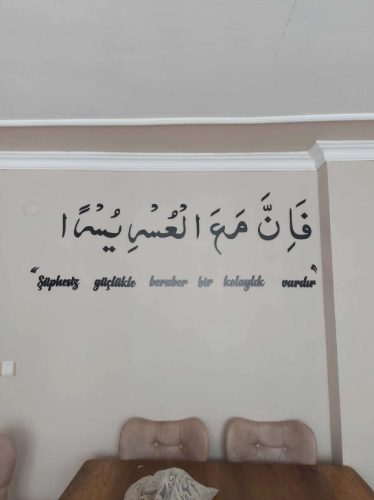 فَاِنَّ مَعَ الْعُسْرِ يُسْرًا
“Şüphesiz güçlükle beraber bir kolaylık vardır”